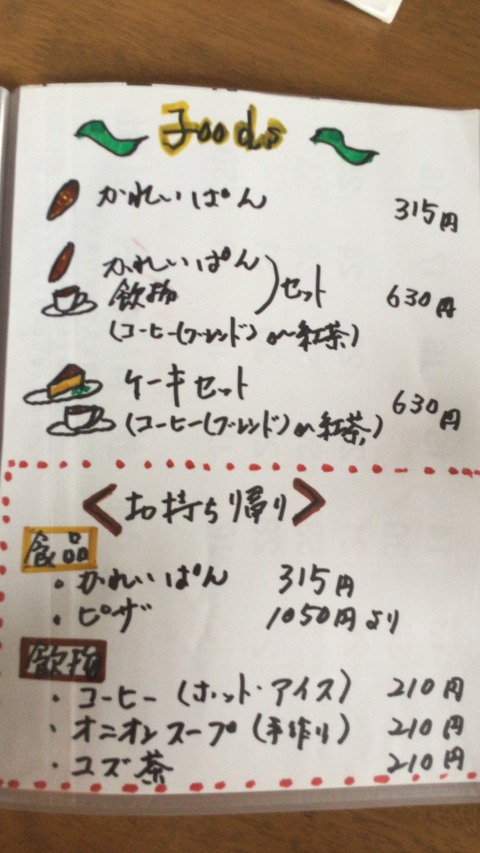 Foods
かれいぱん 315円
かれいぱん
飲物 セット 630円
(コーヒー(ブレンド)か紅茶)
ケーキセット
(コーヒー(ブレンド)か紅茶) 630円
<お持ち帰り>
食品
・かれいぱん 315円
・ピザ 1050円より
飲物
・コーヒー(ホット・アイス) 210円
・オニオンスープ(手作り) 210円
・ユズ茶 210円